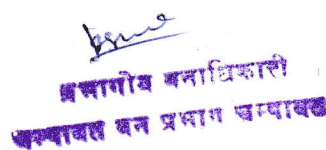 प्रभागीय वनाधिकारी
चम्पावत वन प्रभाग चम्पावत